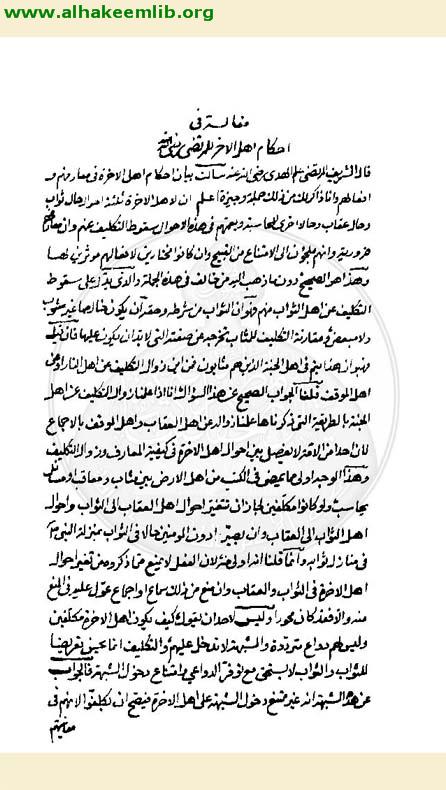 www.alhakeemlib.org
مقالة في
احكام اهل الاخرة للمرتضى رضي الله
قال الشريف المرتضى علم الهدى رضي الله عنه سالت بيان احكام اهل الاخرة في معارفهم و
افعالهم وانا ذاكر لك من ذلك جملة وجيزة اعلم ان لاهل الاخرة ثلثة احوال حال ثواب
وحال عقاب وحالا اخرى للمحاسبة ويعمهم في هذه الاحوال سقوط التكليف عنهم وان معارفهم
ضرورية وانهم ملجؤن الى الامتناع من القبيح وان كانوا مختارين لافعالهم موثرين لها
وهذا هو الصحيح دون ما ذهب اليه من خالف في هذه الجملة والذي يدل على سقوط
التكليف عن اهل الثواب منهم فهو ان الثواب من شرطه وحقه ان يكون خالصا غير مشوب
ولا مقارنة التكليف للثاب تخرجه عن صفته التي لابد ان يكون عليها فان قيل
فهبوا ان هذا يتم في اهل الجنة الذين هم مثابون فمن اين زوال التكليف عن اهل النار او عن
اهل الموقف قلنا الجواب الصحيح عن هذا السؤال انا اذا علمنا زوال التكليف عن اهل
الجنة بالطريقة التي ذكرناها علمنا زواله عن اهل العقاب واهل الموقف بالاجماع
لان احدا من الامة لا يفصل بين احوال اهل الاخرة في كيفية المعارف وزوال التكليف
وهذا الوجه اولى مما يمضي في الكتب من اهل الاخرة بين مثاب ومعاقب
يحاسب ولو كانوا مكلفين لجاز ان تتغير احوال اهل العقاب الى الثواب واحوال
اهل الثواب الى العقاب وان يصير ادون المومنين حالا في الثواب بمنزلة النبي ص
في منازل ثوابه وانما قلنا انه اولى لان العقل لا يمنع مما ذكروه من تغير احوال
اهل الاخرة في الثواب والعقاب وان منع من ذلك سماع واجماع عول عليه في المنع
منه والا فقد كان مجوزا وليس لاحد ان يقول كيف يكون اهل الاخرة مكلفين
وليس لهم دواع مترددة والشبهة لا تدخل عليهم والتكليف انما يحسن تعريضا
للثواب والثواب لا يستحق مع توفر الدواعي وامتناع دخول الشبهة فالجواب
عن هذه الشبهة انه غير ممتنع دخول الشبهة على اهل الاخرة فيصح ان تكلفوا لانهم في
معاينتهم